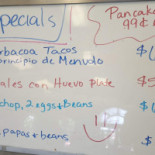 Specials
Pancake
99¢
Barbacoa Tacos
principio de Menudo
ales con Huevo Plate
chop, 2 eggs & Beans
papas & beans